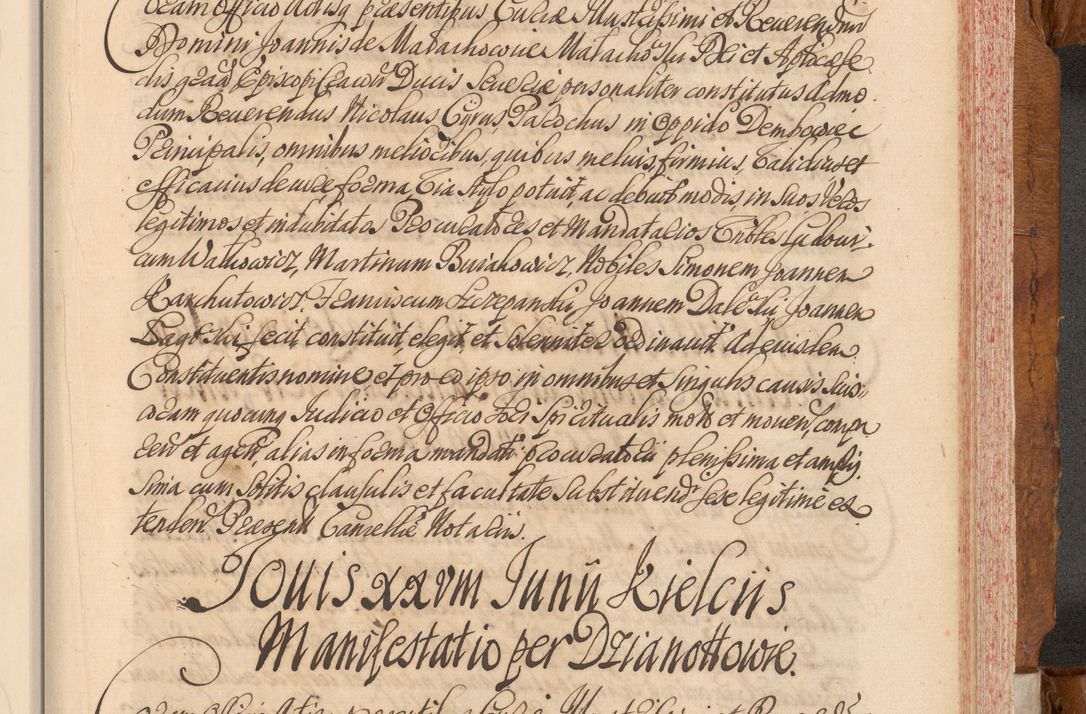 Coram Officio Actisq præsentibus Curiæ Illustrissimi et Reverendissi
Domini Joannis de Małachowice Małachowski Dei et Aplicæ Se
dis gratia Episcopi Cracovien Ducis Severiæ personaliter constitutus Admo
dum Reverendus Nicolaus Cyrus, Parochus in Oppido Dembowiec
Principalis, omnibus melioribus, quibus melius, firmius, validius et
efficacius de jure forma via stylo potuit, ac debuit modis, in suos veros
legitimos et indubitatos Procuratores et Mandatarios Enbles Ludovi
cum Walkowicz, Martinum Buiakowicz, Nobiles Simonem Joannem
Karchutowicz, Franciscum Szczepanski, Joannem Dalski, Joannem
Bagoski, fecit, constituit, elegit, et solenniter ordinavit. Ad ejusdem
Constituentis nomine et pro eo ipso in omnibus et singulis causis suis
coram quocunq Judicio et Officio Fori Spiritualis motis et moven, compa
ren et agen alias in forma mandati procuratorii plenissima et amplis
sima cum solitis clausulis et facultate substituendi sese legitime es
tenden. Præsen Cancellariæ Notariis.
Jovis XXVIII Junÿ Kielciis
Manifestatio per Dzianottowie.